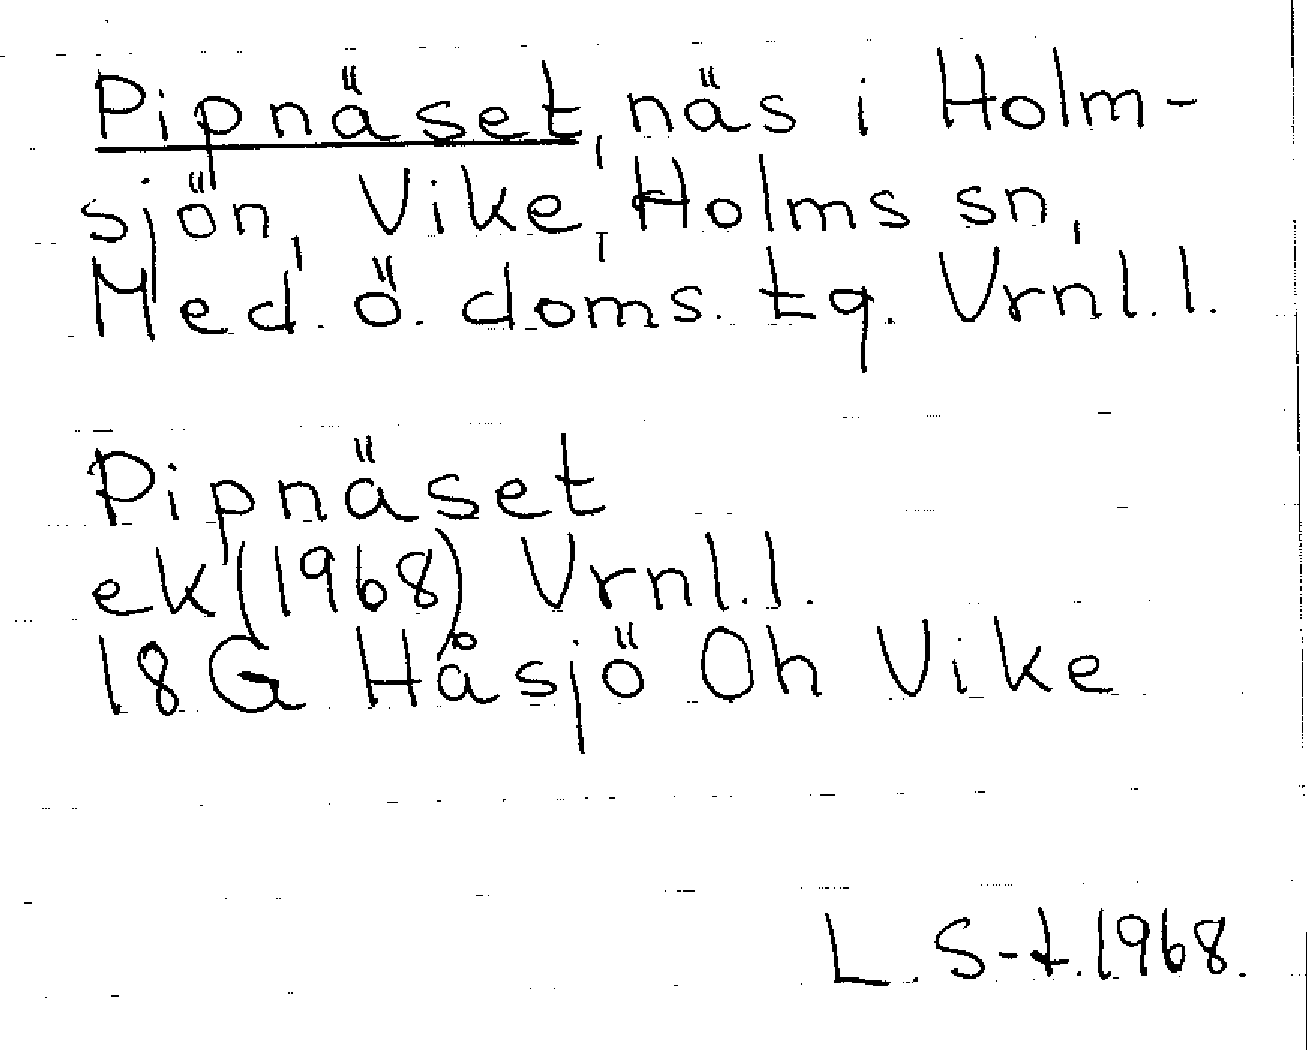 Pipnäset, näs i Holm-
sjön, Vike, Holms sn,
Med. ö. doms. tg. Vrnl.l.
Pipnäset
ek (1968) Vrnl.l.
18 G Håsjö Oh Vike
L. S-t. 1968.